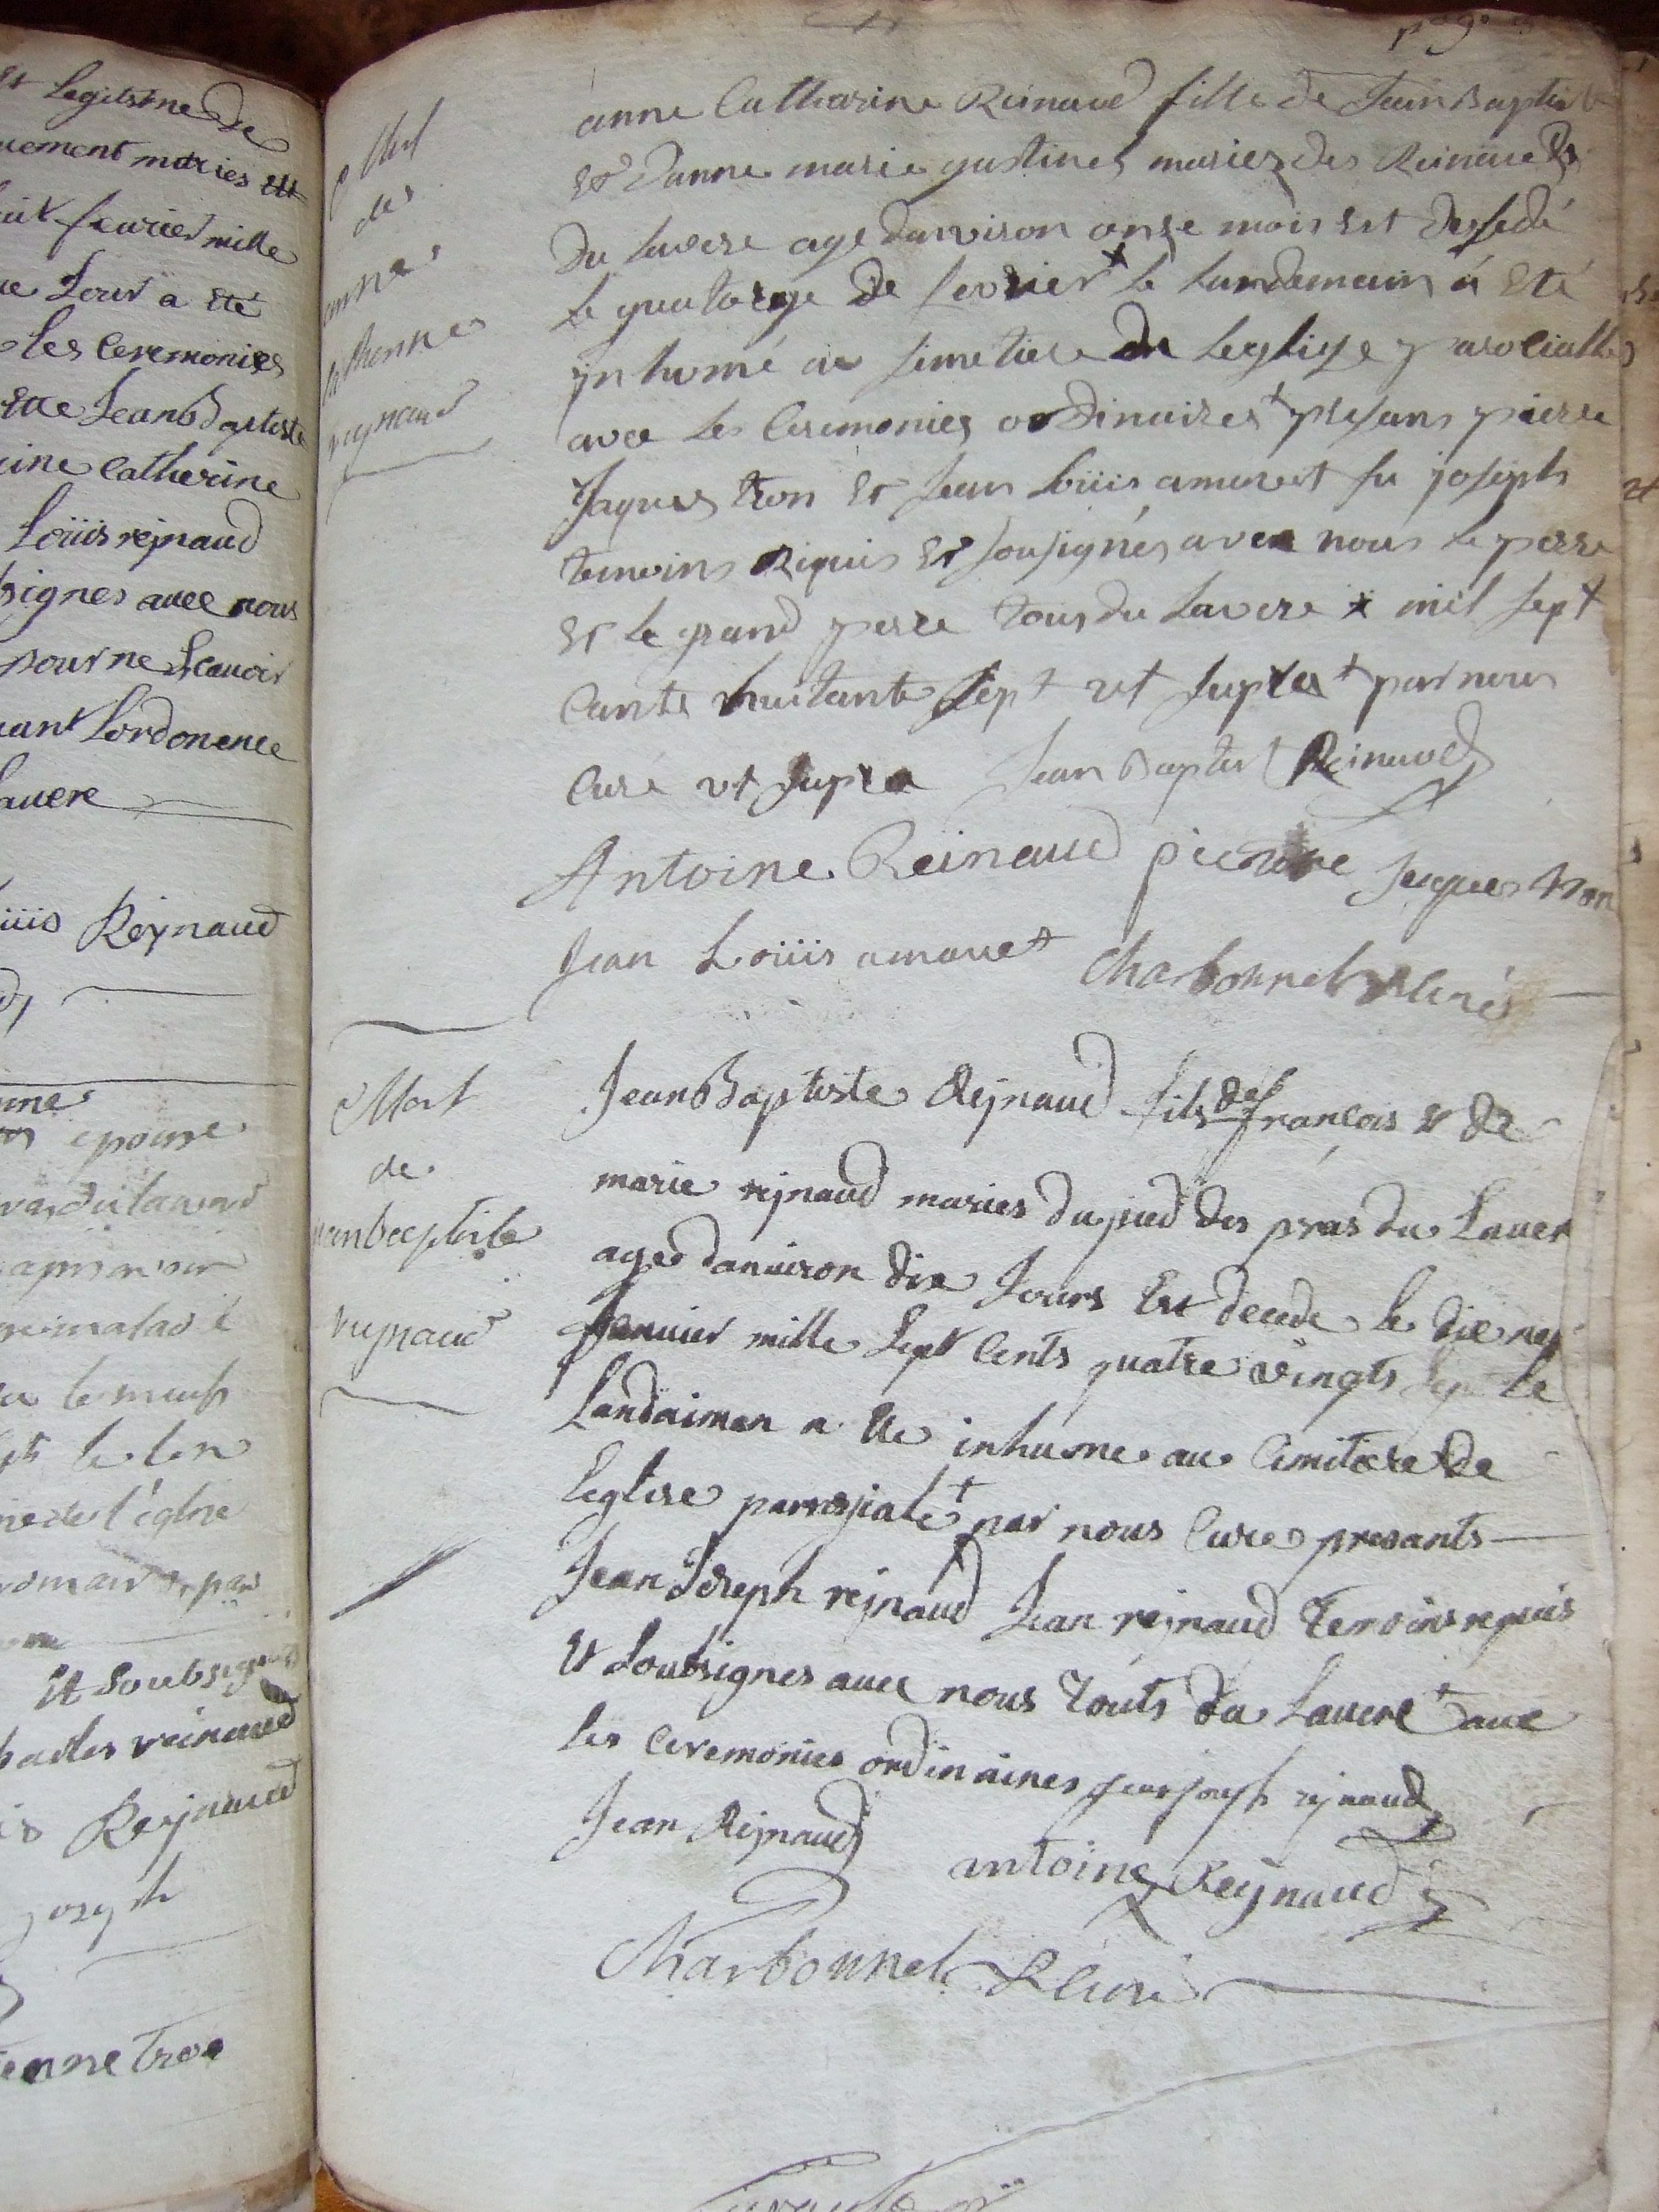 Et Legitime de
uement maries Ett
uit feurier mille
ue Jour a Eté
les Ceremonies
Ette Jean Baptiste
Catherine
Loüis rejnaud
signes auec nous
pour ne Scauoir
uant Lordonence
Lauere
üis Rejnaud
epouse
le
lt Soubsignes
harles reinaud
is Reijnaud
joseph
ienne tron
page
Mort
des
anne
Catherine
reynaud
anne Catharine Reinaud fille de Jean Baptiste
Et Danne marie gastines mariez des Reinauds
Du Lavere age danviron onse mois Est Dessedé
Le quatorze De fevrier Le Landemain a Eté
ÿnhumé au simetiere De Leglise
avec Les Ceremonies ordinaires presans pierre
Jaques tron Et Jean Loüis amavet fu joseph
temoins Riquis Et sousignés avec nous Le perre
Et Le grand perre tous du Lavere mil sept
Cants huitante sept vt supra par nous
Curé vt supra Jean Baptist Reinaud
Antoine Reinaud pierre Jaques tron
Jean Loüis amavet Charbonnel Curé
Mort
de
jean baptiste
rejnaud
Jean Baptiste Rejnaud fils de françois Et de
marie rejnaud maries du pied des pras du Lauer
age danuiron dix Jours Est decede le dix nef
Januier mille Sept Cents quatre vingts Sept Le
Landaiman a Ete inhume au Cimitiere de
Leglise parrosjiale par nous Cure presants
Jean Joseph rejnaud Jean rejnaud temoins requis
Et Soubsignes auec nous touts du Lauere auec
les Ceremonies ordinaires jean joseph rejnaud
Jean Rejnaud
antoine Reijnaud
Charbonnel Curé